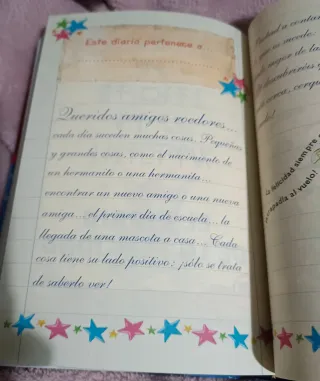 Este diario pertenece a
Queridos amigos roedores...
cada día suceden muchas cosas. Pequeñas
y grandes cosas, como el nacimiento de
un hermanito o una hermanita...
encontrar un nuevo amigo o una nueva
amiga... el primer día de escuela... la
llegada de una mascota a casa... Cada
cosa tiene su lado positivo: ¡sólo se trata
de saberlo ver!
a contar
que
felicidad siempre
al vuelo!